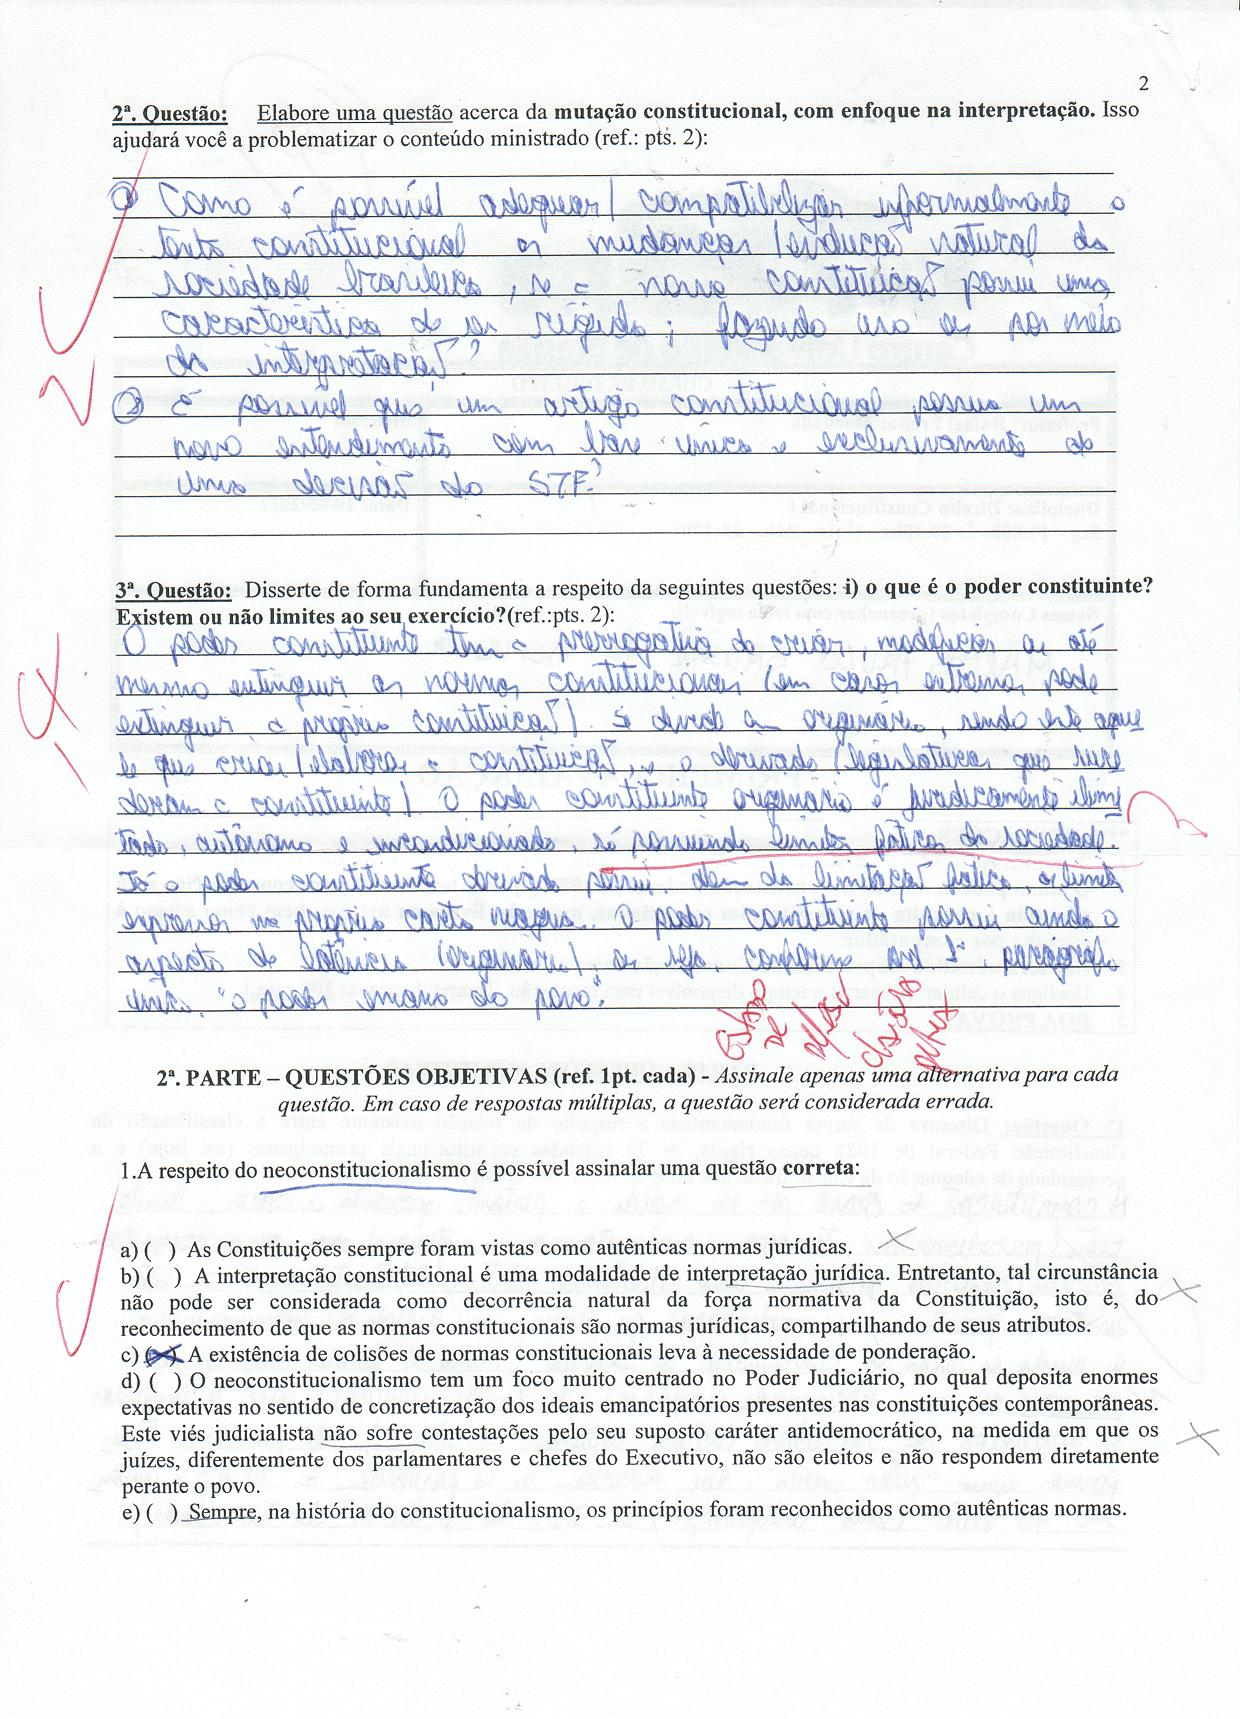 2
2ª. Questão: Elabore uma questão acerca da mutação constitucional, com enfoque na interpretação. Isso
ajudará você a problematizar o conteúdo ministrado (ref.: pts. 2):
① Como é possível adequar/compatibilizar informalmente o
texto constitucional as mudanças/evolução natural da
sociedade brasileira, se a nossa constituição possui uma
característica de ser rígida; fazendo uso ou por meio
da interpretação?
② É possível que um artigo constitucional possua um
novo entendimento com base única e exclusivamente de
uma decisão do STF?
2
3ª. Questão: Disserte de forma fundamenta a respeito da seguintes questões: i) o que é o poder constituinte?
Existem ou não limites ao seu exercício?(ref.:pts. 2):
O poder constituinte tem a prerrogativa de criar, modificar ou até
mesmo extinguir as normas constitucionais (em casos extremos pode
extinguir a própria constituição). Se divide em originário, sendo este aque
le que criou/elaborou a constituição, e o derivado (legislaturas que suce
deram a constituinte). O poder constituinte originário é juridicamente ilimi
tado, autônomo e incondicionado, só possuindo limites fáticos da sociedade.
Já o poder constituinte derivado possui além da limitação fática, os limites
expressos na própria carta magna. O poder constituinte possui ainda o
aspecto de latência (originário), ou seja, conforme art. 1º, parágrafo
único, "o poder emana do povo".
Estado
de
defesa
cláusulas
pétreas
2ª. PARTE – QUESTÕES OBJETIVAS (ref. 1pt. cada) - Assinale apenas uma alternativa para cada
questão. Em caso de respostas múltiplas, a questão será considerada errada.
1.A respeito do neoconstitucionalismo é possível assinalar uma questão correta:
a) ( ) As Constituições sempre foram vistas como autênticas normas jurídicas.
b) ( ) A interpretação constitucional é uma modalidade de interpretação jurídica. Entretanto, tal circunstância
não pode ser considerada como decorrência natural da força normativa da Constituição, isto é, do
reconhecimento de que as normas constitucionais são normas jurídicas, compartilhando de seus atributos.
c) (X) A existência de colisões de normas constitucionais leva à necessidade de ponderação.
d) ( ) O neoconstitucionalismo tem um foco muito centrado no Poder Judiciário, no qual deposita enormes
expectativas no sentido de concretização dos ideais emancipatórios presentes nas constituições contemporâneas.
Este viés judicialista não sofre contestações pelo seu suposto caráter antidemocrático, na medida em que os
juízes, diferentemente dos parlamentares e chefes do Executivo, não são eleitos e não respondem diretamente
perante o povo.
e) ( ) Sempre, na história do constitucionalismo, os princípios foram reconhecidos como autênticas normas.